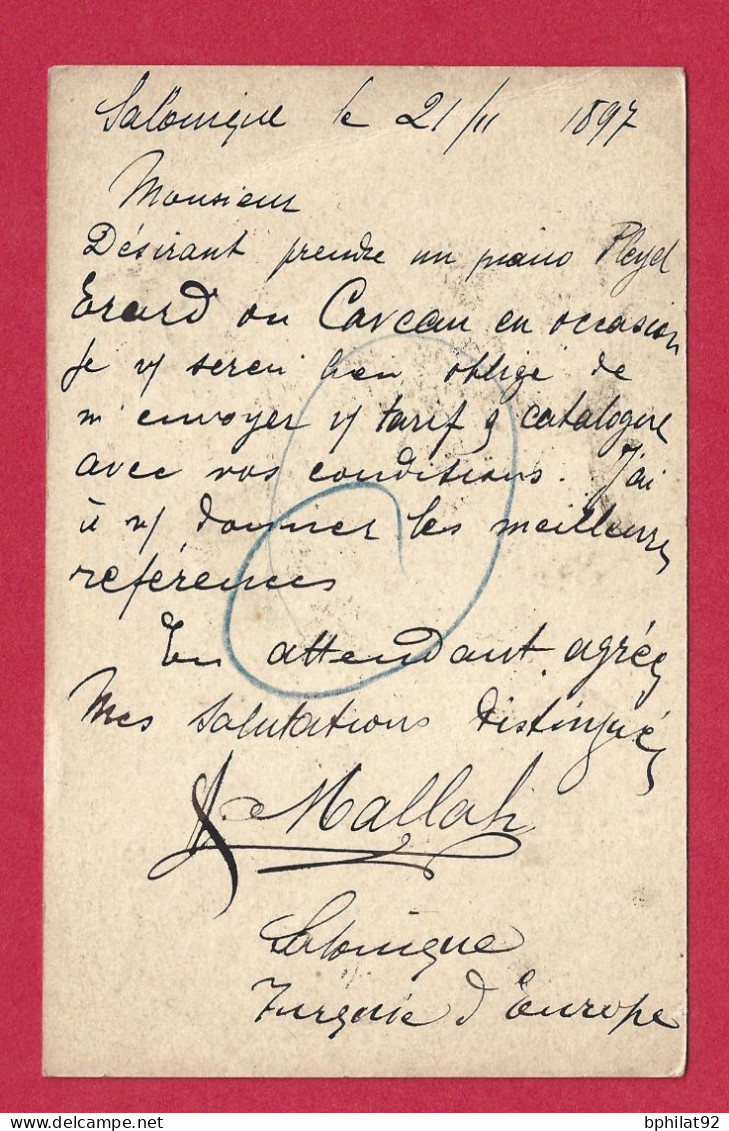 Salonique le 21/11 1897
Monsieur
Désirant prendre un piano Pleyel
Erard ou Gaveau en occasion
Je v/ serai bien obligé de
m'envoyer v/ tarif & catalogue
avec vos conditions. J'ai
à v/ donner les meilleures
références
En attendant agréez
Mes salutations distinguées
Mallah
Salonique
Turquie d'Europe
bphilat92